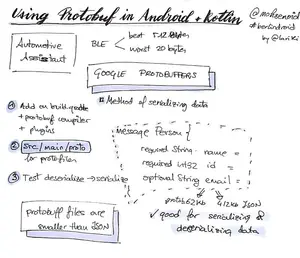 Using Protobuf in Android + Kotlin
@mohsenoid
#berlindroid
by @lariki
Automotive
Assistant
BLE
best 512 bytes
worst 20 bytes
GOOGLE PROTOBUFFERS
Method of serializing data
1 Add on build.gradle
+ protobuf compiler
+ plugins
2 src/main/proto
for proto files
3 Test deserialize → serialize
message Person {
required String name =
required int32 id =
optional String email =
}
proto 62kb
412kb JSON
✓ good for serializing &
deserializing data
protobuff files are
smaller than JSON